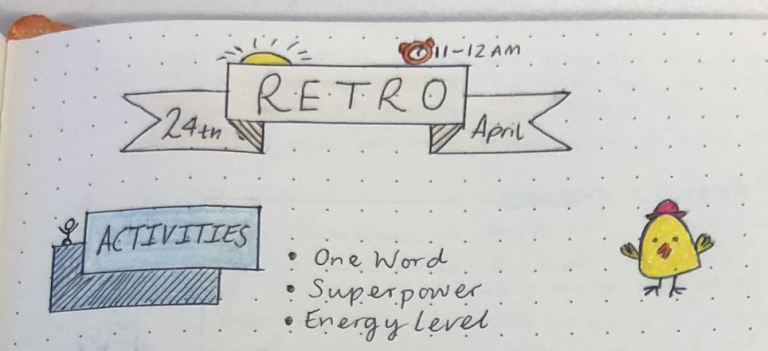 11-12 AM
RETRO
24th April
ACTIVITIES
• One Word
• Superpower
• Energy Level